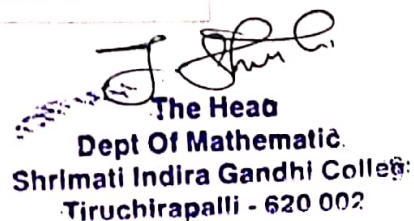 The Head
Dept Of Mathematic.
Shrimati Indira Gandhi College:
Tiruchirapalli - 620 002